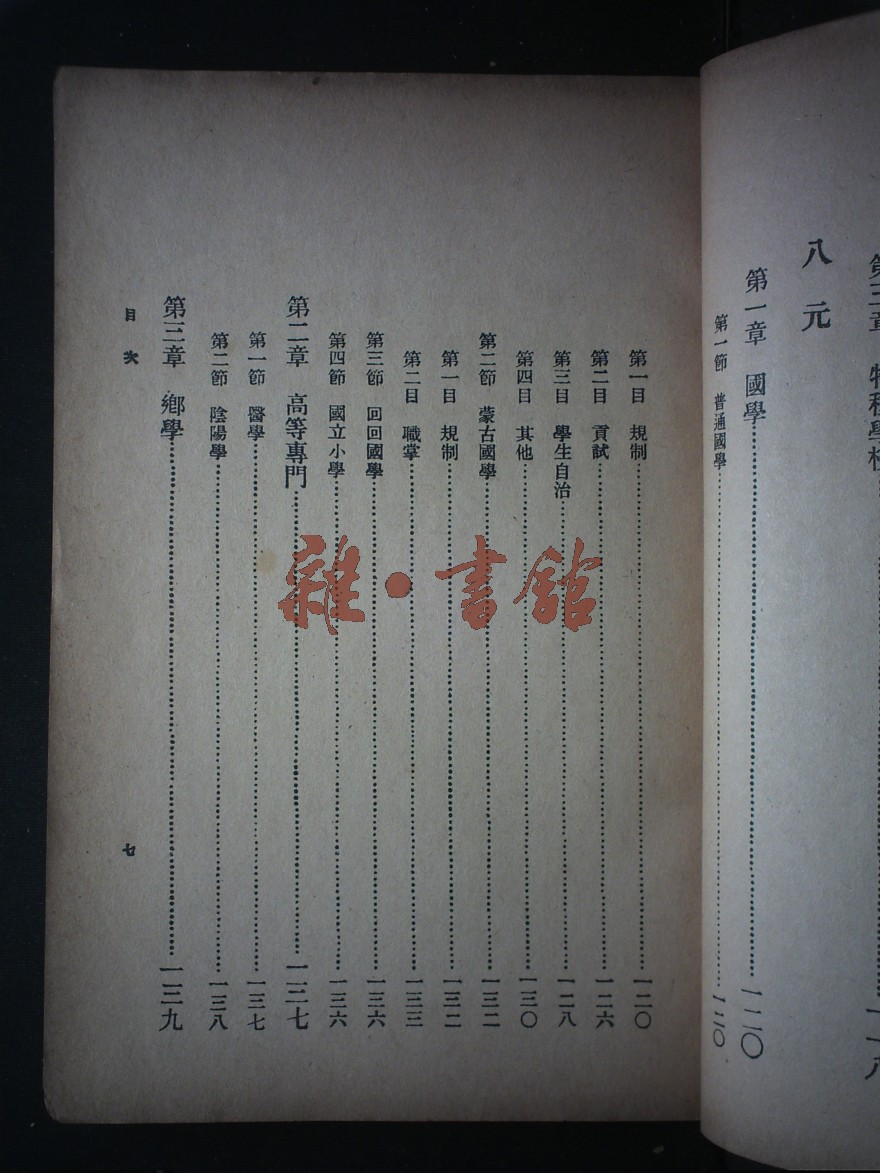 八元
第一章 國學……一二〇
第一節 普通國學……一二〇
第一目 規制……一二〇
第二目 貢試……一二六
第三目 學生自治……一二八
第四目 其他……一三〇
第二節 蒙古國學……一三二
第一目 規制……一三二
第二目 職掌……一三三
第三節 回回國學……一三六
第四節 國立小學……一三六
第二章 高等專門……一三七
第一節 醫學……一三七
第二節 陰陽學……一三八
第三章 鄉學……一三九
目次
七
雜·書館